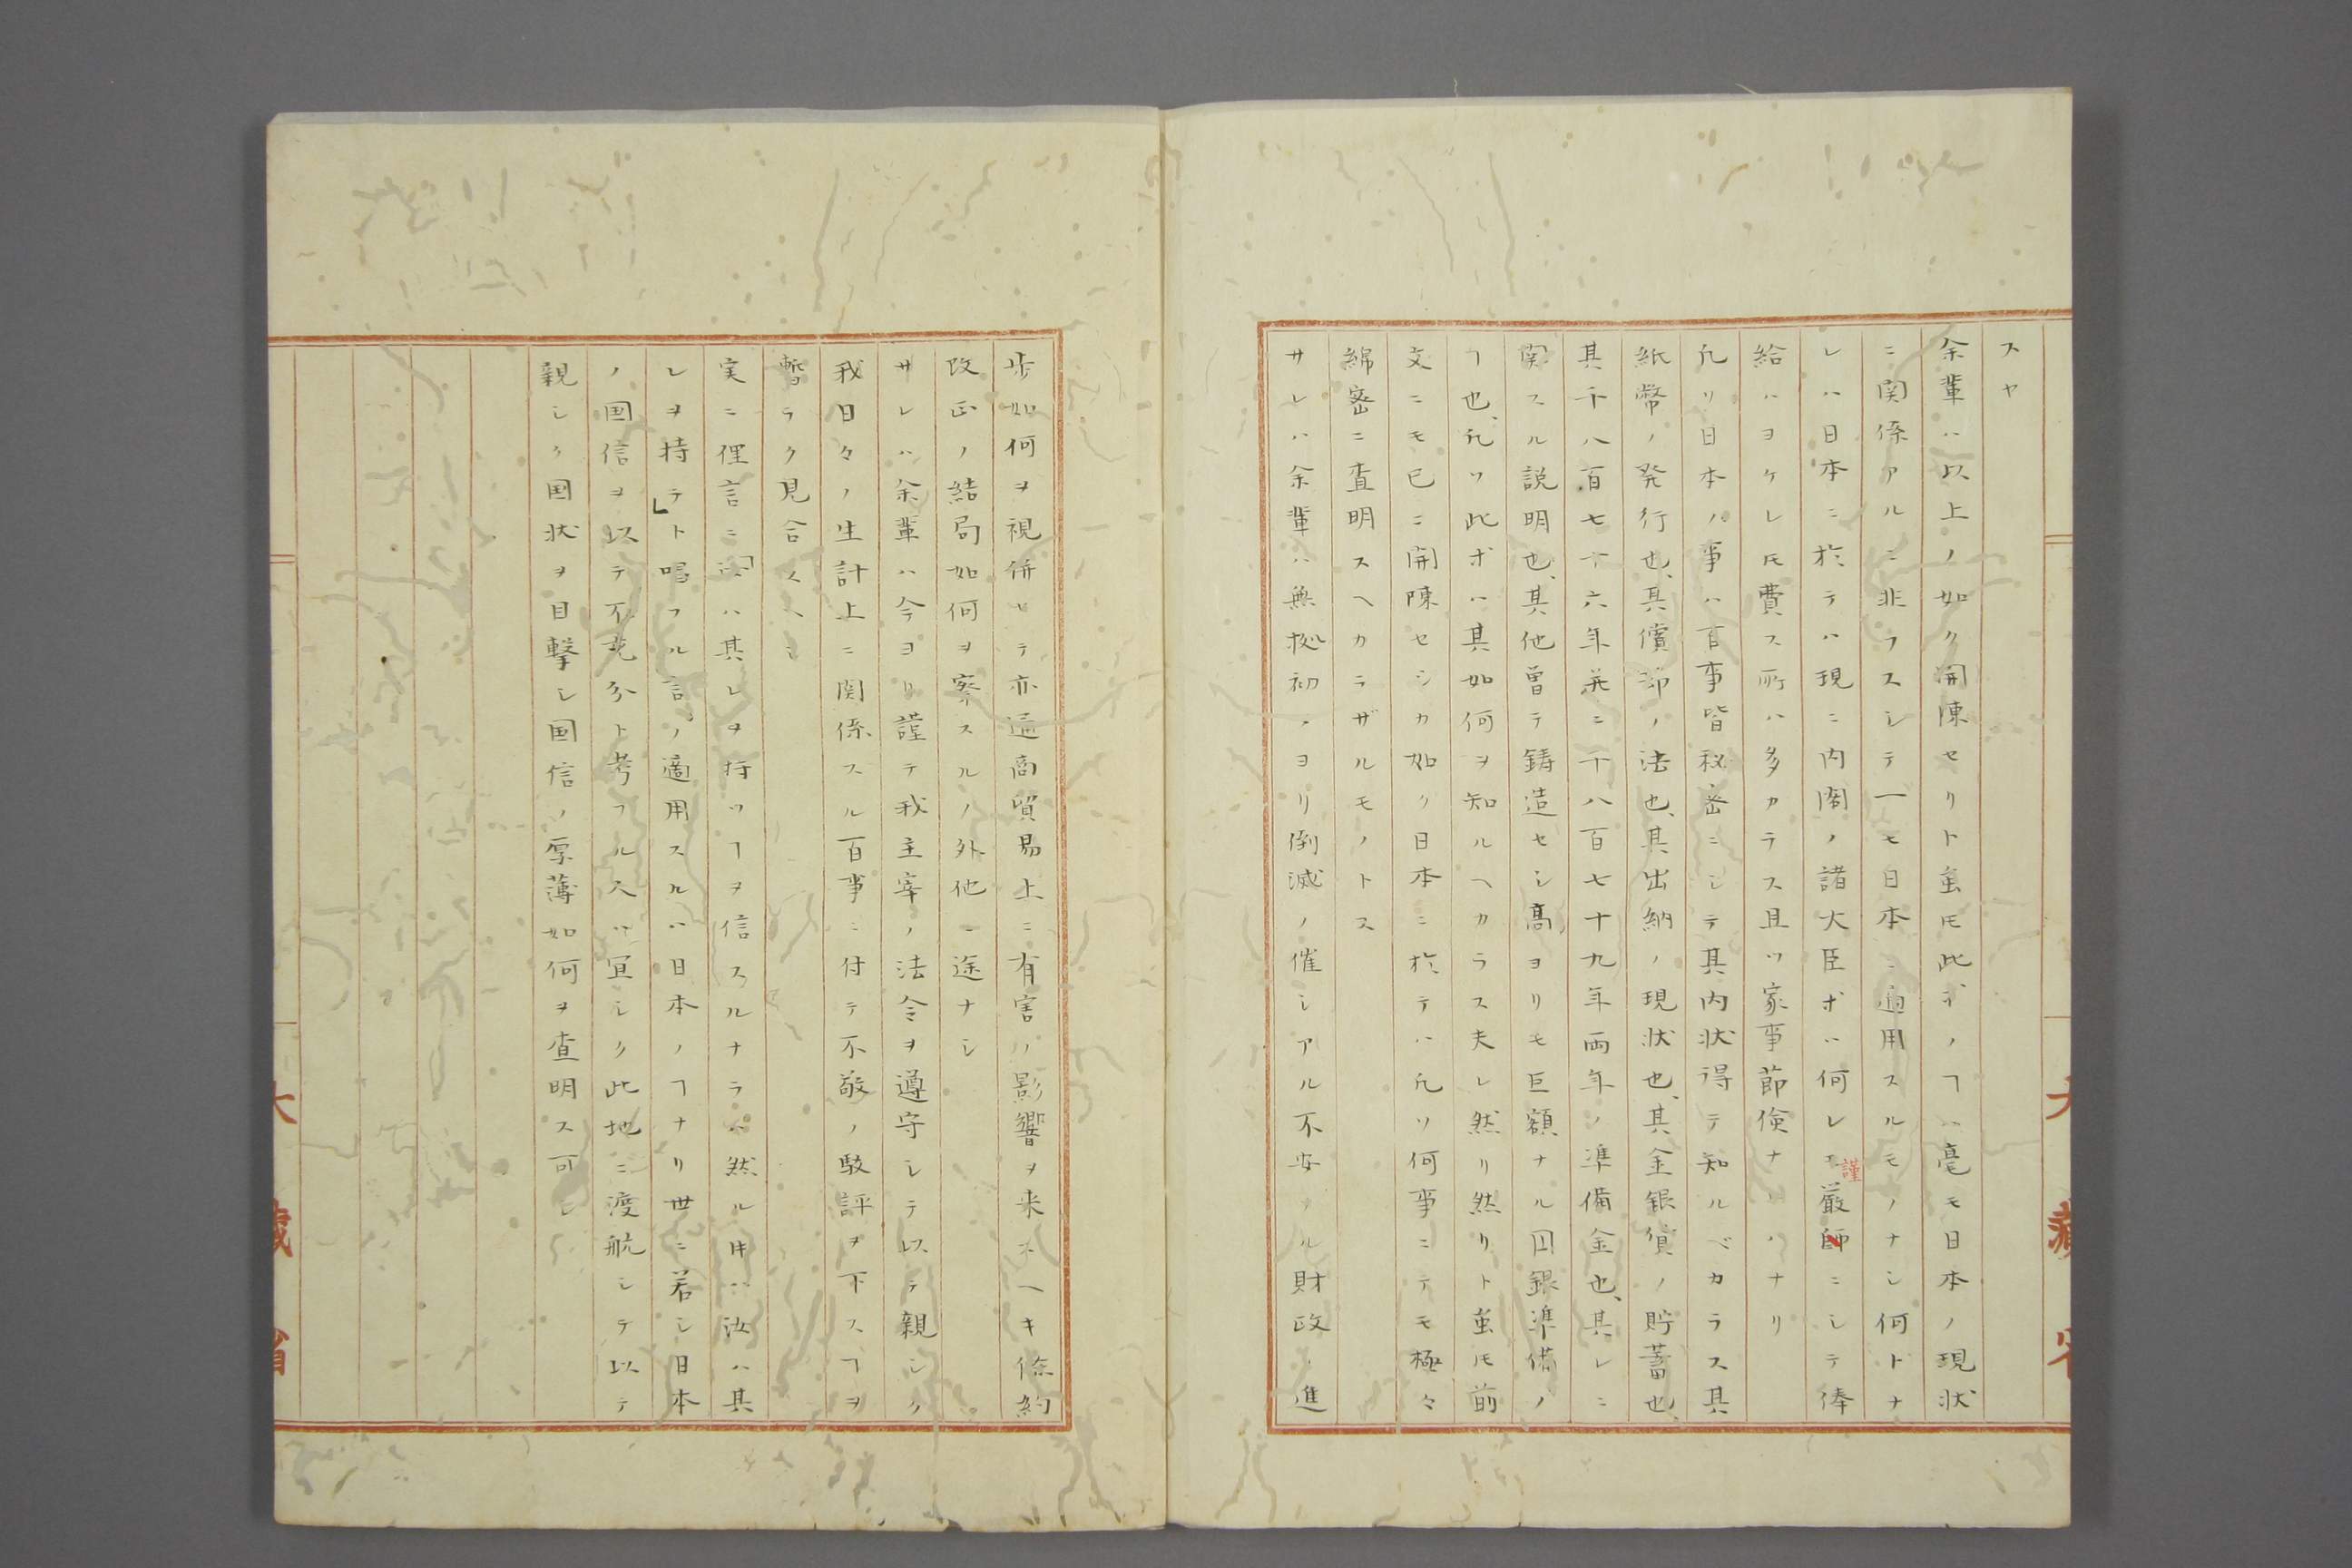 スヤ
余輩ハ以上ノ如ク開陳セリト雖𪜈此ホノヿハ毫モ日本ノ現状
ニ関係アルニ非ラスシテ一モ日本ニ適用スルモノナシ何トナ
レハ日本ニ於テハ現ニ内閣ノ諸大臣ホハ何レモ謹厳師ニシテ俸
給ハヨケレ𪜈費ス所ハ多カラス且ツ家事節倹ナレハナリ
凡ソ日本ノ事ハ百事皆秘密ニシテ其内状得テ知ルベカラス其
紙幣ノ発行也、其償却ノ法也、其出納ノ現状也、其金銀貨ノ貯蓄也、
其千八百七十六年並ニ千八百七十九年両年ノ準備金也、其レニ
関スル説明也、其他曽テ鋳造セシ高ヨリモ巨額ナル円銀準備ノ
ヿ也、凡ソ此ホハ其如何ヲ知ルヘカラス夫レ然リ然リト雖𪜈前
文ニモ已ニ開陳セシカ如ク日本ニ於テハ凡ソ何事ニテモ極々
綿密ニ査明スヘカラザルモノトス
サレハ余輩ハ無拠初メヨリ倒滅ノ催シアル不安ナル財政ノ進
歩如何ヲ視併セテ亦通商貿易上ニ有害ノ影響ヲ来スヘキ條約
改正ノ結局如何ヲ察スルノ外他ニ途ナシ
サレハ余輩ハ今ヨリ謹テ我主宰ノ法令ヲ遵守シテ以テ親シク
我日々ノ生計上ニ関係スル百事ニ付テ不敬ノ駁評ヲ下スヿヲ
暫ラク見合スヘシ
実ニ俚言ニ「汝ハ其レヲ持ツヿヲ信スルナラハ然ル時ハ汝ハ其
レヲ持テ」ト唱フル言ノ適用スルハ日本ノヿナリ世ニ若シ日本
ノ国信ヲ以テ不充分ト考フル人ハ宜シク此地ニ渡航シテ以テ
親シク国状ヲ目撃シ国信ノ厚薄如何ヲ査明ス可シ
大蔵省